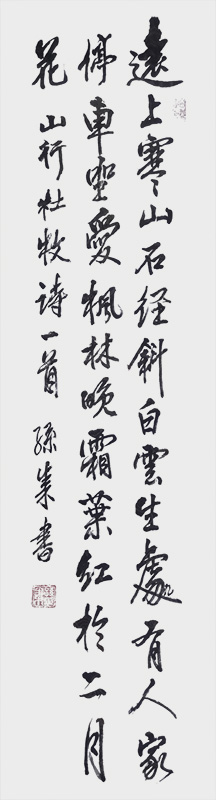 遠上寒山石径斜白雲生處有人家
停車坐愛楓林晚霜葉紅於二月
花 山行杜牧詩一首 孫 書